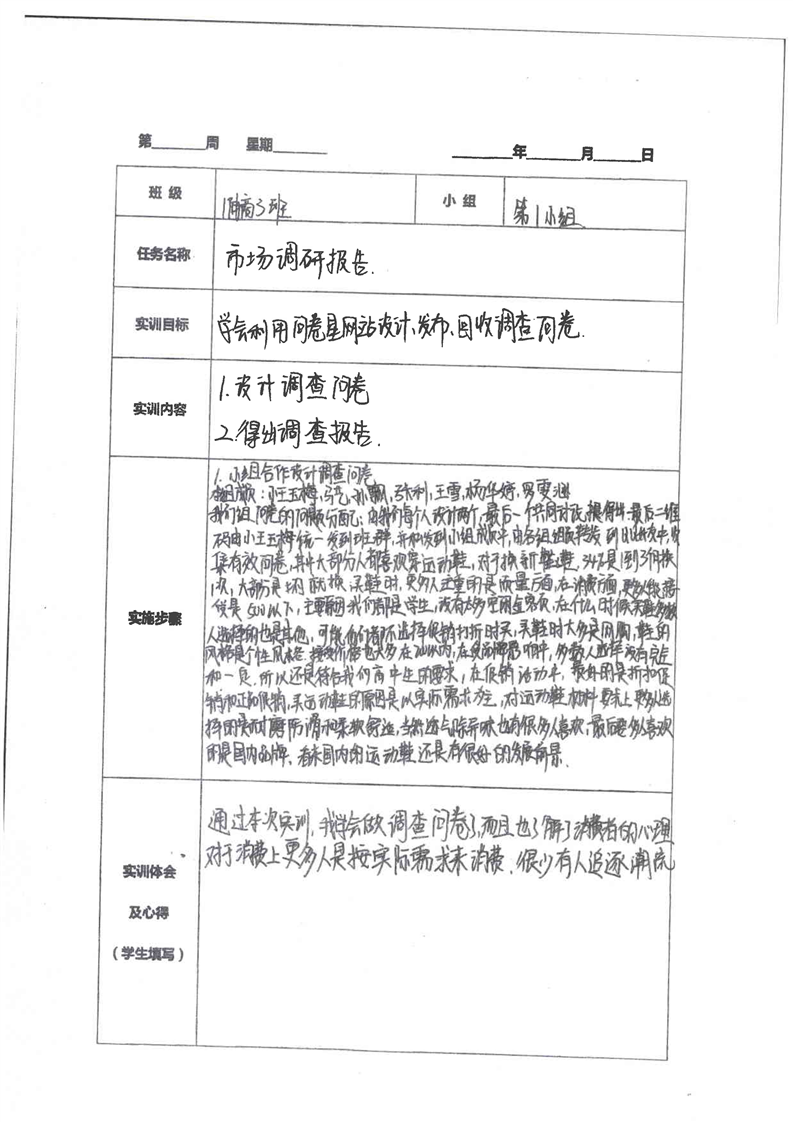 第____周 星期____ ____年____月____日
班 级 商3班 小 组 第1小组
任务名称 市场调研报告.
实训目标 学会利用问卷星网站设计、发布、回收调查问卷.
实训内容
1.设计调查问卷
2.得出调查报告.
实施步骤
1.小组合作设计调查问卷
我们组问卷的问题分配：由我们每个人设计两个,最后一个共同讨论得出.最后二维
码由小王玉梅统一发到班群,并和发到小组成员手中,由各组组员转发到
集有效问卷,其中大部分人都喜欢穿运动鞋,对于换新鞋,是1到3个月换
1次,大部分是坏了就换,买鞋时,更多人注重的是质量方面,在消费方面,更多人能接
受是500以下,主要原因我们都是学生,没有太多空闲在什么时候买鞋多数
人选择的也是其他,可能他们都不选择促销打折时买,买鞋时大多是风格,鞋的
风格是个性风格.接受价格也大多在以内,在多数人选择没有完全
和一良.所以还是符合我们高中生的要求,在促销活动中,最好的是折扣促
销和正品促销,买运动鞋的原因是以实际需求为主,对运动鞋材料要求上更多人选
择的是耐磨防滑和柔软舒适,当然透气除异味也有很多人喜欢,最后更多人喜欢
的是国内品牌.看来国内的运动鞋还是有很好的发展前景.
实训体会
及心得
（学生填写）
通过本次实训,我学会做调查问卷了,而且也了解了消费者的心理
对于消费上更多人是按实际需求来消费.很少有人追逐潮流